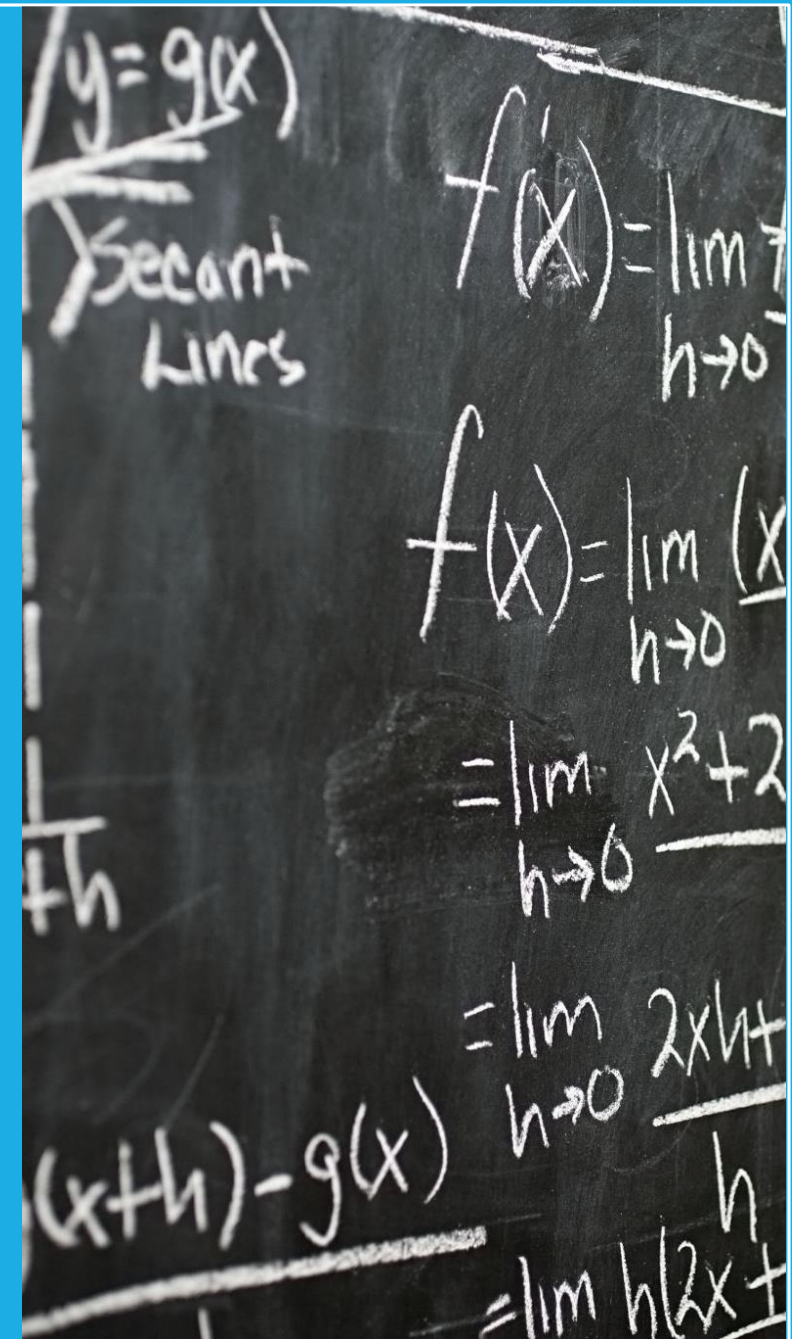 y=g(x)
Secant
Lines
+h
(x+h)-g(x)
f'(x)=lim f
h→0
f(x)=lim (x
h→0
=lim x²+2
h→0
=lim 2xh+
h→0 h
=lim h(2x+